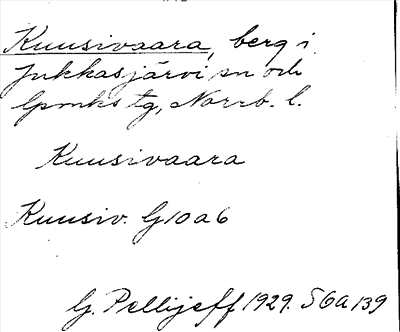 Kuusivaara, berg i
Jukkasjärvi sn och
lpmks tg, Norrb. l.
Kuusivaara
Kuusiv. G10a6
G. Pellijeff 1929. S6a139